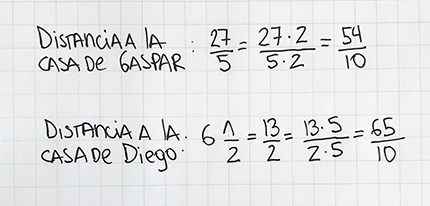 DISTANCIA A LA
CASA DE GASPAR : 27/5 = 27·2/5·2 = 54/10
DISTANCIA A LA.
CASA DE Diego: 6 1/2 = 13/2 = 13·5/2·5 = 65/10